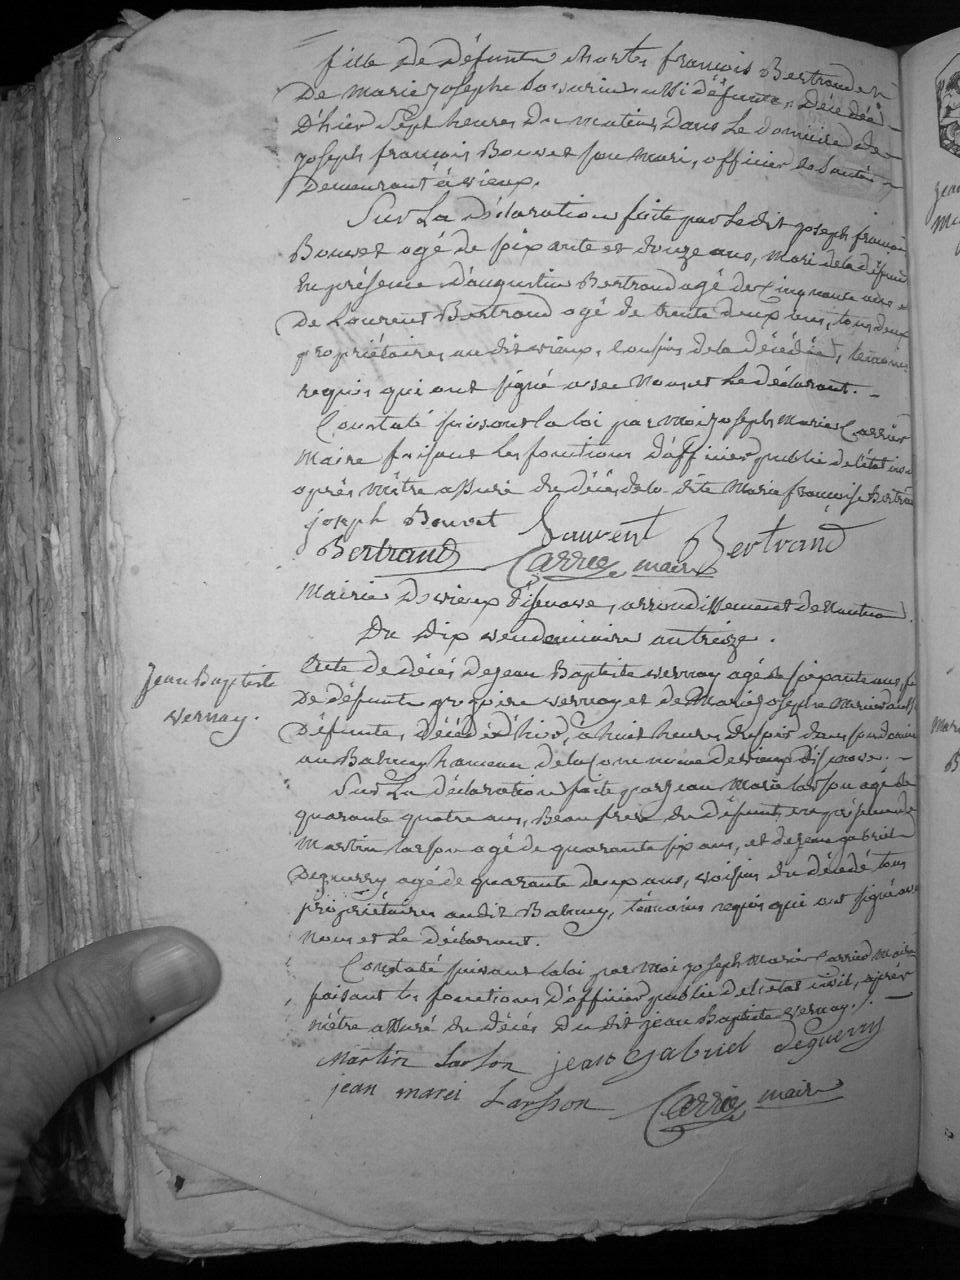 fille de défunte Charles françois Bertrand et
De Marie Josephe aussi défunte, Décédée
D'hier Sept heures du matin, Dans Le domicile de
Joseph françois Bouvet son Mari, officier de Santé
Demeurant à vieux.
Sur La Déclaration faite par Ledit joseph françois
Bouvet agé de soixante et douze ans, Mari de la défunte
En présence d'augustin Bertrand agé de Cinquante ans et
De Laurent Bertrand agé de trente deux ans, tous deux
propriétaires audit vieux, Cousins de la décédée, témoins
requis qui ont signé avec Nous et Le déclarant.
Constaté suivant la loi par Moi joseph Marie Carrier
Maire faisant les fonctions d'officier public de l'état civil
après M'être assuré du décès de la dite Marie françoise Bertrand
joseph Bouvet Laurent Bertrand
Bertrand Carrier maire
Mairie De vieux d'isenave, arrondissement de Nantua.
Du Dix vendemiaire an treize.
Jean Baptiste
vernay.
Acte de décès de jean Baptiste vernay agé de soixante ans, fils
De défunts gregoire vernay et de Marie josephe aussi
Défunte, décédé d'hier, à huit heures du soir dans son domicile
au Balmay hameau de la Commune de vieux d'isenave.
Sur La déclaration faite par jean Marie larson agé de
quarante quatre ans, Beaufrere du défunt, en présence de
Martin larson agé de quarante six ans, et de jean gabriel
Deguerry agé de quarante deux ans, voisins du décédé tous
propriétaires audit Balmay, témoins requis qui ont signé avec
nous et Le déclarant.
Constaté suivant la loi par Moi joseph Marie Carrier Maire
faisant les fonctions d'officier public de l'état civil, après
m'être assuré du décès Du dit jean Baptiste vernay.
Martin Larson jean gabriel deguerry
jean marei Larsson Carrier maire